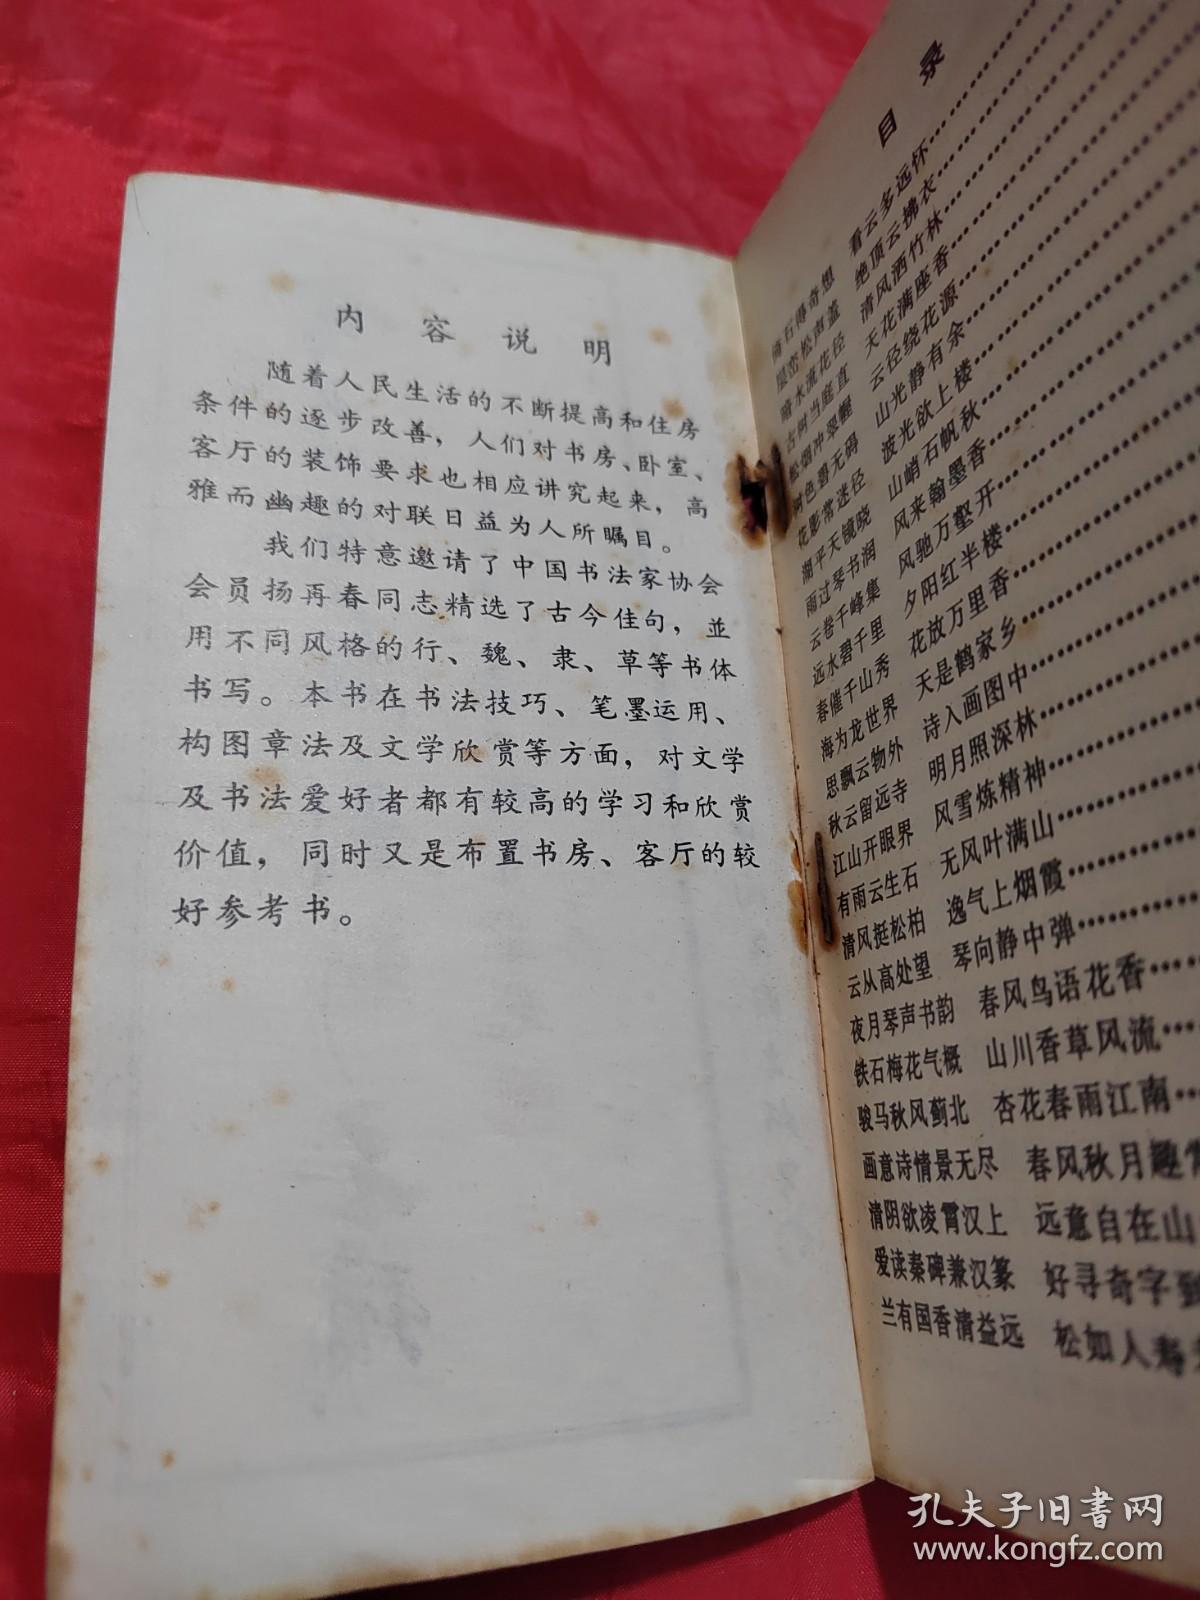 内容说明
随着人民生活的不断提高和住房
条件的逐步改善，人们对书房、卧室、
客厅的装饰要求也相应讲究起来，高
雅而幽趣的对联日益为人所瞩目。
我们特意邀请了中国书法家协会
会员扬再春同志精选了古今佳句，並
用不同风格的行、魏、隶、草等书体
书写。本书在书法技巧、笔墨运用、
构图章法及文学欣赏等方面，对文学
及书法爱好者都有较高的学习和欣赏
价值，同时又是布置书房、客厅的较
好参考书。
目录
石得奇想 看云多远怀…………
松声盖 绝顶云拂衣…………
暗水流花径 清风洒竹林…………
古树当庭直 天花满座香…………
松烟冲翠幄 云径绕花源…………
树色碧无碍 山光静有余…………
花影常迷径 波光欲上楼…………
湖平天镜晓 山峭石帆秋…………
雨过琴书润 风来翰墨香…………
云卷千峰集 风驰万壑开…………
远水碧千里 夕阳红半楼…………
春催千山秀 花放万里香…………
海为龙世界 天是鹤家乡…………
思飘云物外 诗入画图中…………
秋云留远寺 明月照深林…………
江山开眼界 风雪炼精神…………
有雨云生石 无风叶满山…………
清风挺松柏 逸气上烟霞…………
云从高处望 琴向静中弹…………
夜月琴声书韵 春风鸟语花香……
铁石梅花气概 山川香草风流……
骏马秋风蓟北 杏花春雨江南……
画意诗情景无尽 春风秋月趣常
清阴欲凌霄汉上 远意自在山
爱读秦碑兼汉篆 好寻奇字到
兰有国香清益远 松如人寿
孔夫子旧书网
www.kongfz.com